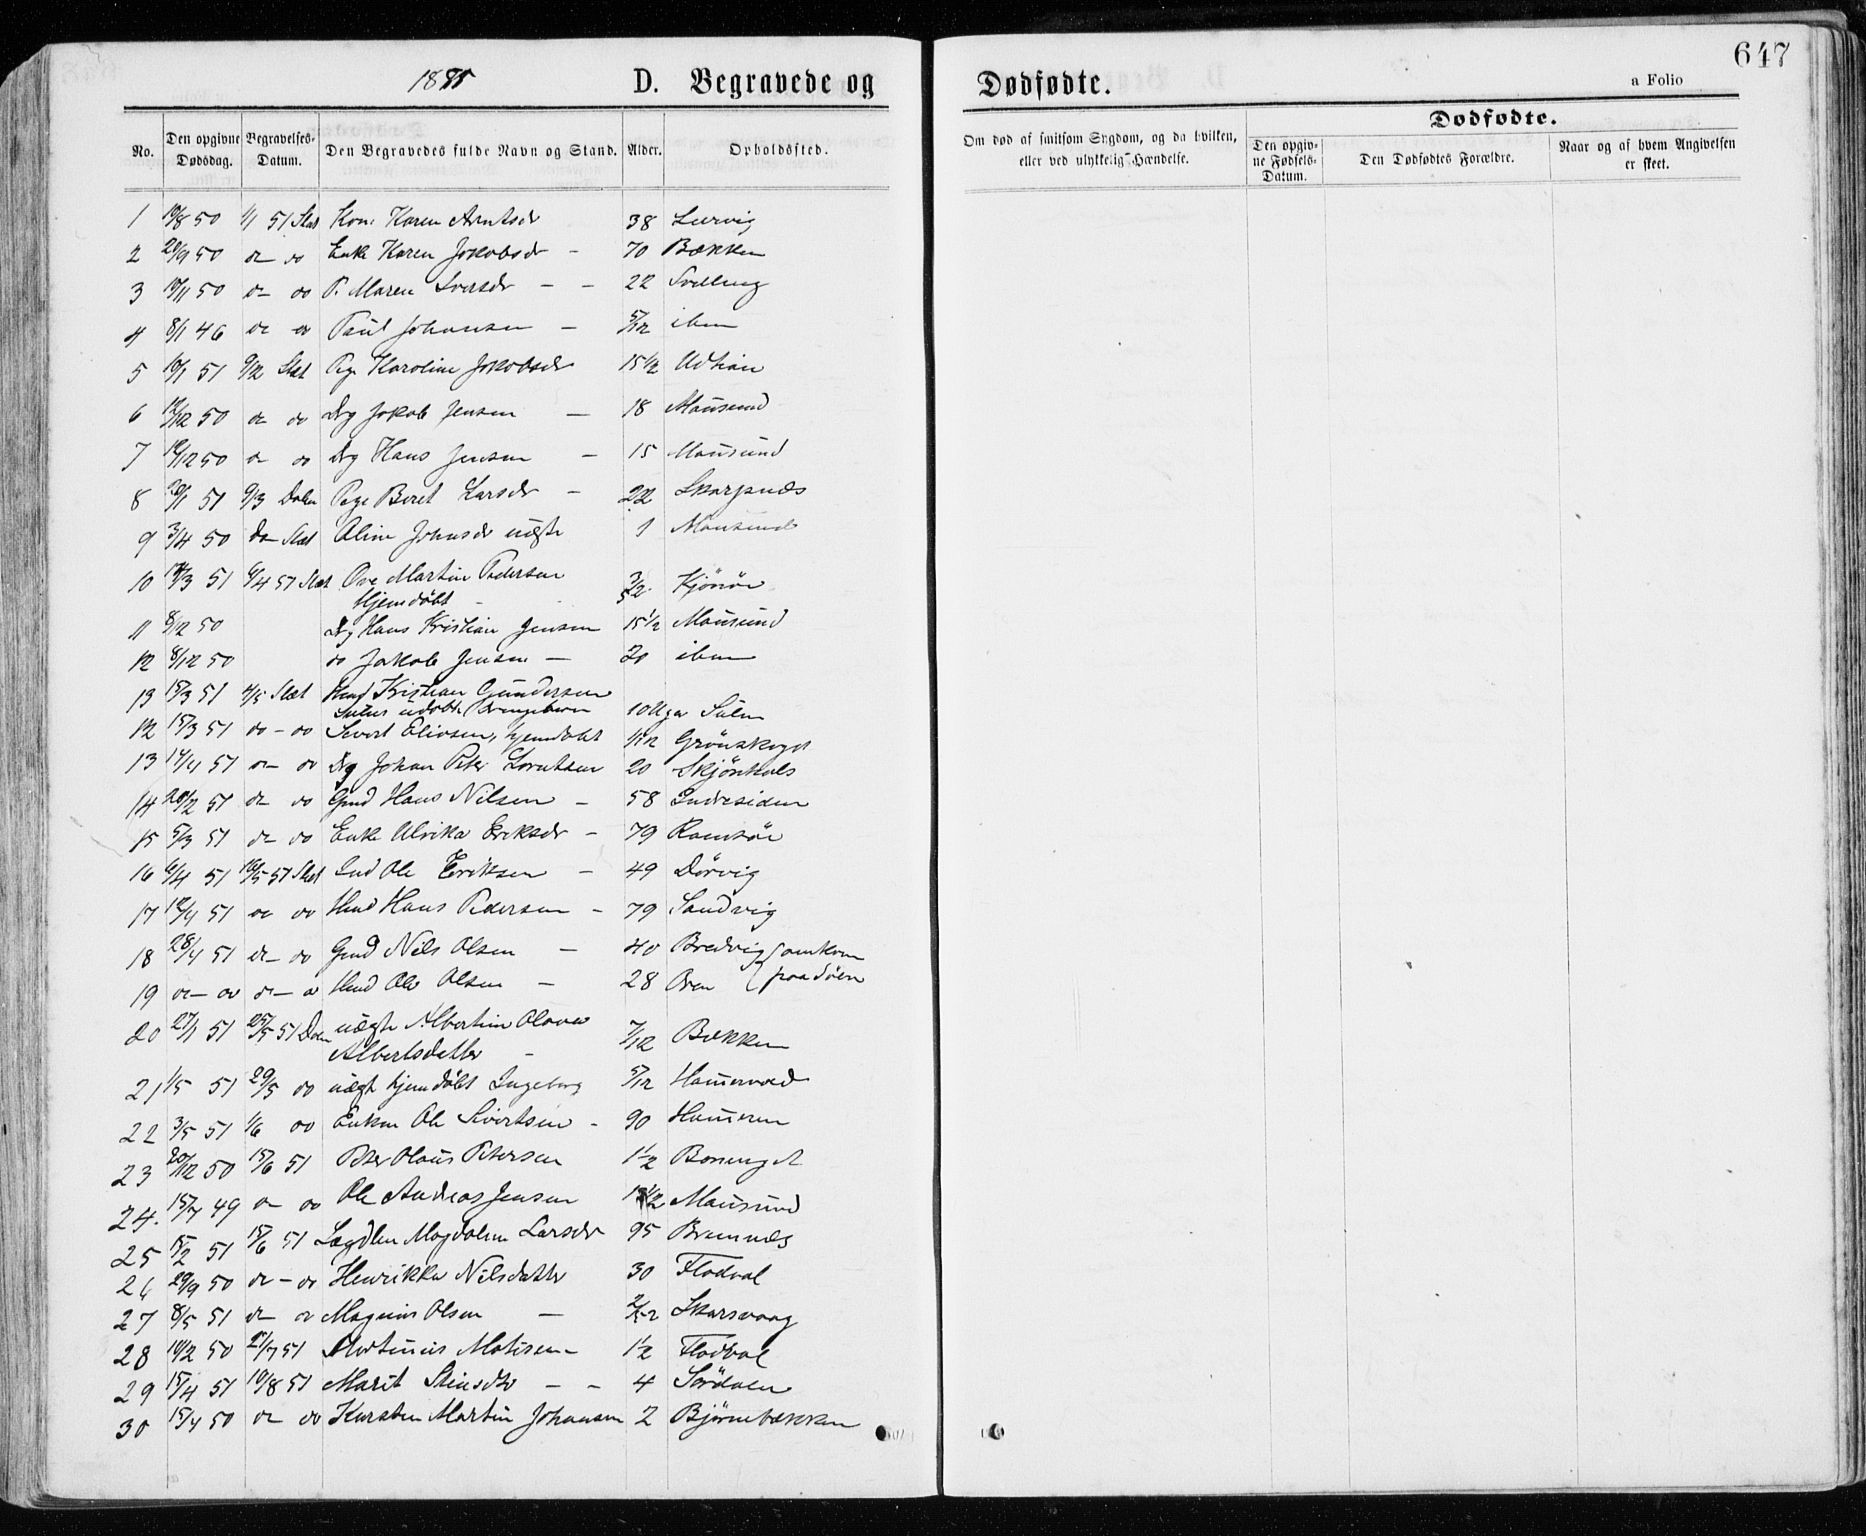 1851 D. Begravede og
Dødfødte.
a Folio
647
No.
Den opgivne Dødsdag.
Begravelses-Datum.
Den Begravedes fulde Navn og Stand.
Alder.
Opholdssted.
Om død af smitsom Sygdom, og da hvilken, eller ved ulykkelig Hændelse.
Dødfødte.
Den opgivne Fødsels-Datum.
Den Dødfødtes Forældre.
Naar og af hvem Angivelsen er skeet.
1 19/8 50 1/1 51 Slet Kone Karen Arntsdr 38 Lervig
2 20/9 50 do do Enke Karen Jokobsdr - 70 Bækken
3 19/11 50 do do P. Maren Iversdr - - 22
4 8/1 46 do do Paul Johansen - 5/12 ibm
5 10/1 51 9/2 Slet Pge Karoline Jokobsdr 15 1/2
6 12/12 50 do do Dg Jokob Jensen - 18 Mausund
7 12/12 50 do do Dg Hans Jensen - 15 Mausund
8 26/1 51 9/3 Dolm Pige Beret Larsdr - 22 Skarpnæs
9 3/4 50 do Slet Oline Johnsdr uægte 1 Mausund
10 51 6/4 51 Slet Ove Martin Pedersen Hjemdöbt - Kjönön
11 8/12 50 Dg Hans Kristian Jensen 15 1/2 Mausund
12 8/12 50 do Jakob Jensen - 20 ibm
13 15/3 51 4/5 Slet Kristian Gundersen udöbt Drengebarn 10 Uger Sulen
12 15/3 51 do - do Sivert Eliasen, hjemdöbt Grönskaget
13 14/4 51 do do Dg Johan Peter Lorntsen 20 Skjönhals
14 28/2 51 do do Gmd Hans Nilsen - 58 Indresiden
15 5/3 51 do do Enke Ulrika Eriksdr - 79 Ramsöe
16 6/4 51 18/5 51 Slet Ind Ole Eriksen - 49 Dörvig
17 12/4 51 do do Hmd Hans Pedersen - 79 Sandvig
18 28/4 51 do - do Gmd Nils Olsen - 40 Bredvig } omkom
19 do - do do - do Hmd Ole Olsen - 28 Oven } paa Söen
20 27/1 51 25/5 51 Dolm uægte Albertine Olava Albertsdatter - 7/12 Bækken
21 1/5 51 29/5 do uægte hjemdöbt Ingeborg 5/12 Hammervold
22 3/5 51 1/6 do Enkm Ole Sivertsen - 90 Hameren
23 20/12 50 15/6 51 Peter Olaus Petersen 1 1/2
24. 15/7 49 do do Ole Andreas Jensen Mausund
25 15/2 51 15/6 51 Lægdlm Magdalene Larsdr 95 Bremnæs
26 29/9 50 do - do Henrikke Nilsdatter 30 Flodval
27 8/5 51 do do Magnus Olsen - Skarsvaag
28 10/2 50 51 Martinus Matisen - 1 1/2 Flodval
29 15/4 51 10/8 51 Marit Stinsdtr - - 4 Sördalen
30 15/4 50 do do Karsten Martin Johansen 2 Bjørnebækken